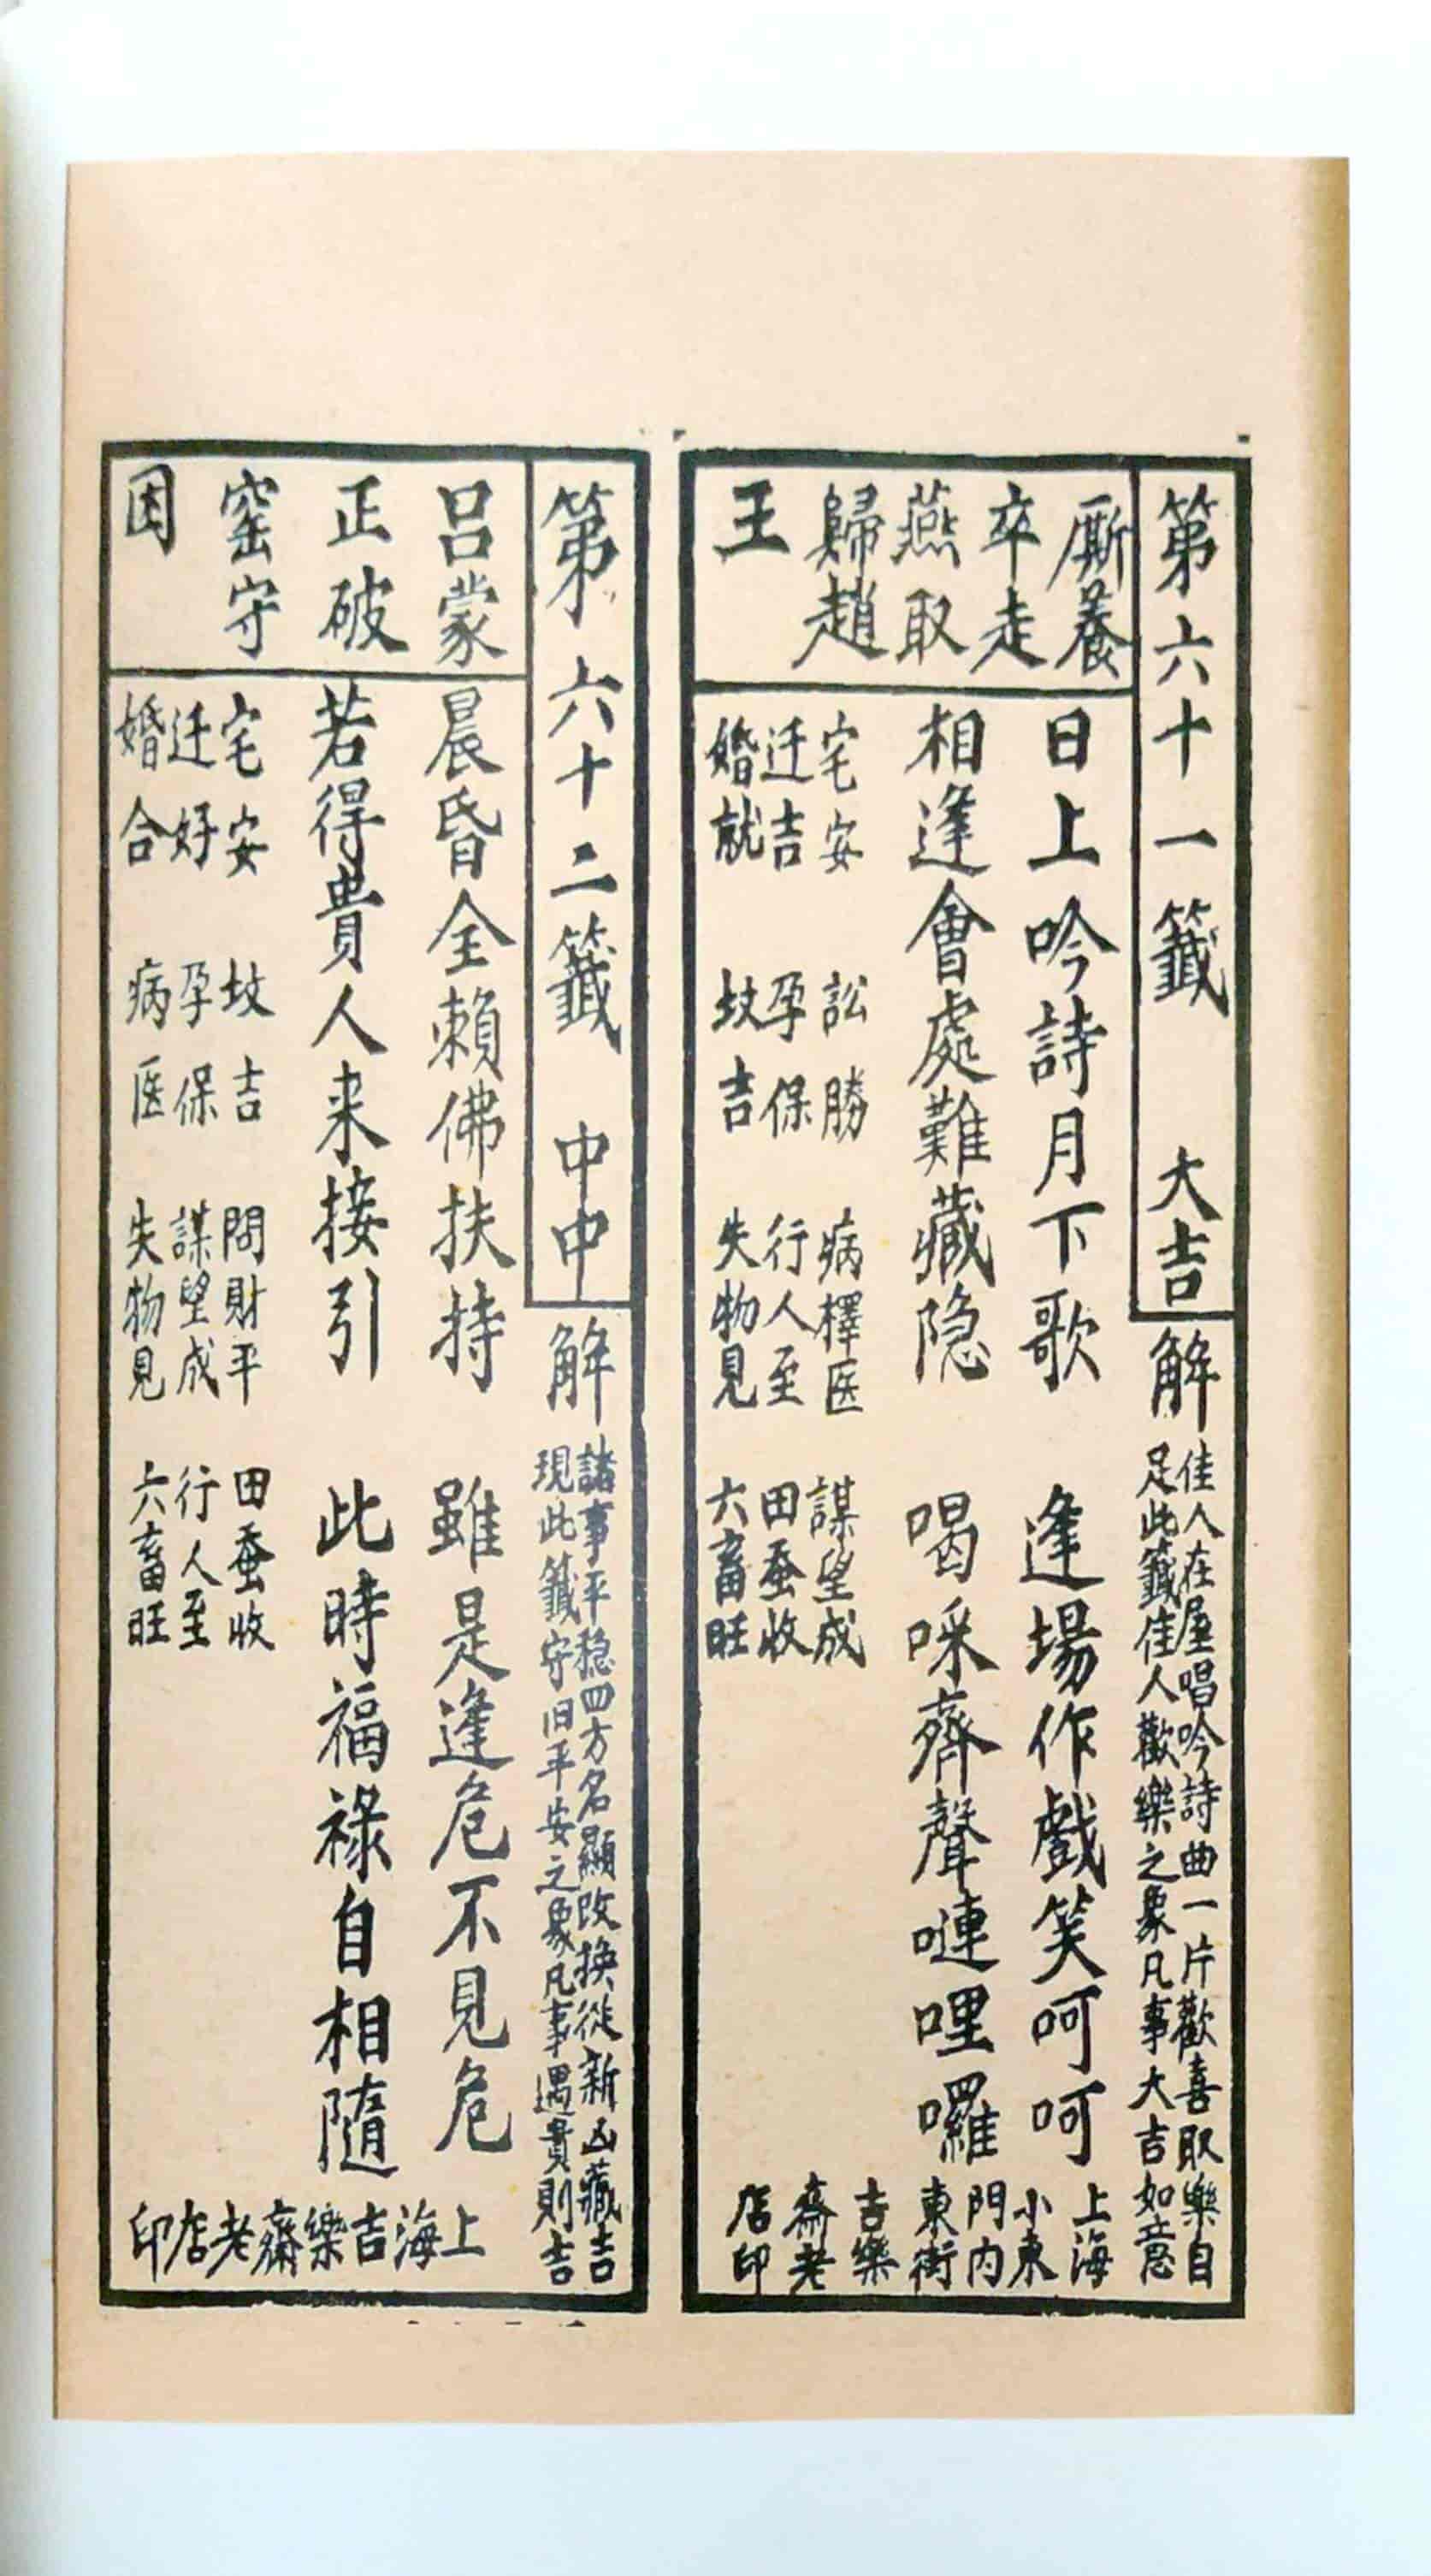 第六十一籤　大吉
解
佳人在屋唱吟詩曲一片歡喜取樂自
足此籤佳人歡樂之象凡事大吉如意
厮養
卒走
燕取
歸趙
王
日上吟詩月下歌　逢場作戲笑呵呵
相逢會處難藏隐　喝哚齊聲嗹哩囉
宅安　訟勝　病擇医　謀望成
迁吉　孕保　行人至　田蚕收
婚就　坟吉　失物見　六畜旺
上海
小東
門内
東街
吉樂
齋老
店印
第六十二籤　中中
解
諸事平穏四方名顯改換從新凶藏吉
現此籤守旧平安之象凡事遇貴則吉
吕蒙
正破
窑守
困
晨昏全賴佛扶持　雖是逢危不見危
若得貴人来接引　此時福祿自相隨
宅安　坟吉　問財平　田蚕收
迁好　孕保　謀望成　行人至
婚合　病医　失物見　六畜旺
上海吉樂齋老店印